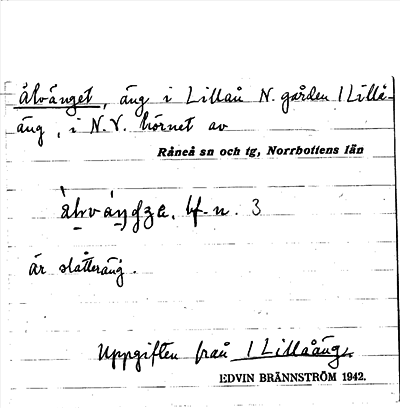 ålvänget, äng i Lillån N. gården 1 Lillå-
äng, i N.V. hörnet av
Råneå sn och tg, Norrbottens län
bf. n. 3
är slåtteräng.
Uppgiften från 1 Lillåäng.
EDVIN BRÄNNSTRÖM 1942.